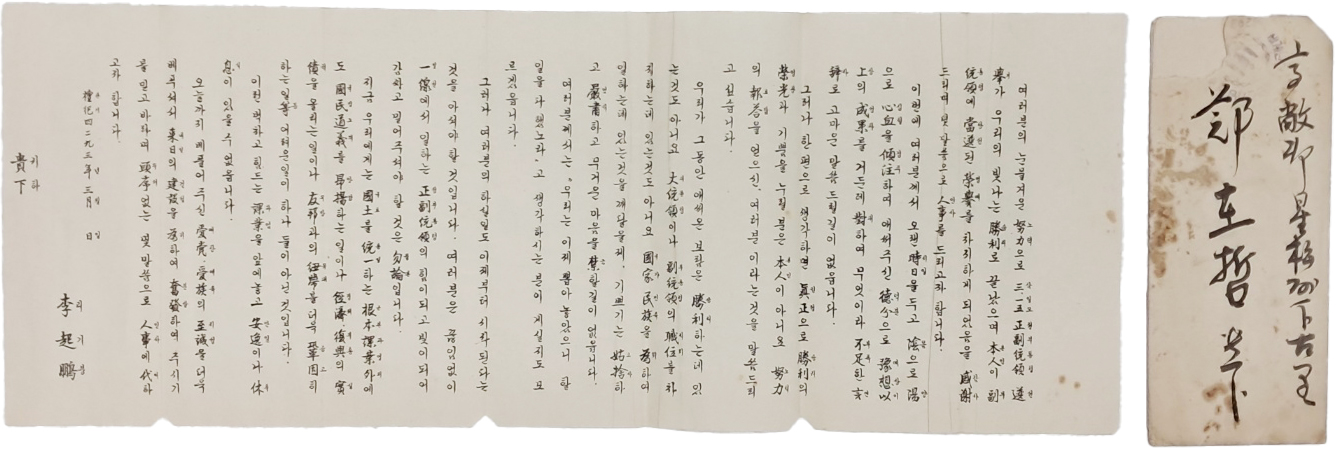 여러분의 눈물겨운 努力으로 三·一五 正副統領選
擧가 우리의 빛나는 勝利로 끝났으며 本人이 副
統領에 當選된 榮譽를 차지하게 되었음을 感謝
드리며 몇 말씀으로 人事를 드리고자 합니다.
이번에 여러분께서 오랜 時日을 두고 陰으로 陽
으로 心血을 傾注하여 애써주신 德分으로 豫想以
上의 成果를 거둔데 對하여 무엇이라 不足한 言
辭로 고마운 말씀 드릴길이 없읍니다.
그러나 한편으로 생각하면 眞正으로 勝利의
榮光과 기쁨을 누릴 분은 本人이 아니요 努力
의 報答을 얻으신, 여러분 이라는 것을 말씀드리
고 싶습니다.
우리가 그동안 애써온 보람은 勝利하는데 있
는것도 아니요 大統領이나 副統領의 職位를 차
지하는데 있는것도 아니요 國家民族을 爲하여
일하는데 있는것을 깨달을제, 기쁘기는 姑捨하
고 嚴肅하고 무거운 마음을 禁할길이 없읍니다.
여러분께서는 “우리는 이제 뽑아놓았으니 할
일을 다 했노라”고 생각하시는 분이 계실지도 모
르겠읍니다.
그러나 여러분의 하실일도 이제부터 시작된다는
것을 아셔야 할 것입니다. 여러분은 끊임없이
一線에서 일하는 正副統領의 힘이 되고 빛이 되어
감싸고 밀어주셔야 할 것은 勿論입니다.
지금 우리에게는 國土를 統一하는 根本課業外에
도 國民道義를 昻揚하는 일이나 經濟·復興의 實
績을 올리는 일이나 友邦과의 紐帶를 더욱 鞏固히
하는 일等 어려운일이 하나 둘이 아닌 것입니다.
이러한 벅차고 힘드는 課業을 앞에 놓고 安逸이나 休
息이 있을 수 없읍니다.
오늘까지 베풀어 주신 愛黨·愛族의 至誠을 더욱
베푸셔서 來日의 建設을 爲하여 奮發하여 주시기
를 믿고 바라며 頭序없는 몇 말씀으로 人事에 代하
고자 합니다.
檀紀四二九三年 三月 日
李起鵬
貴下
星松面下古里
鄭在哲 貴下